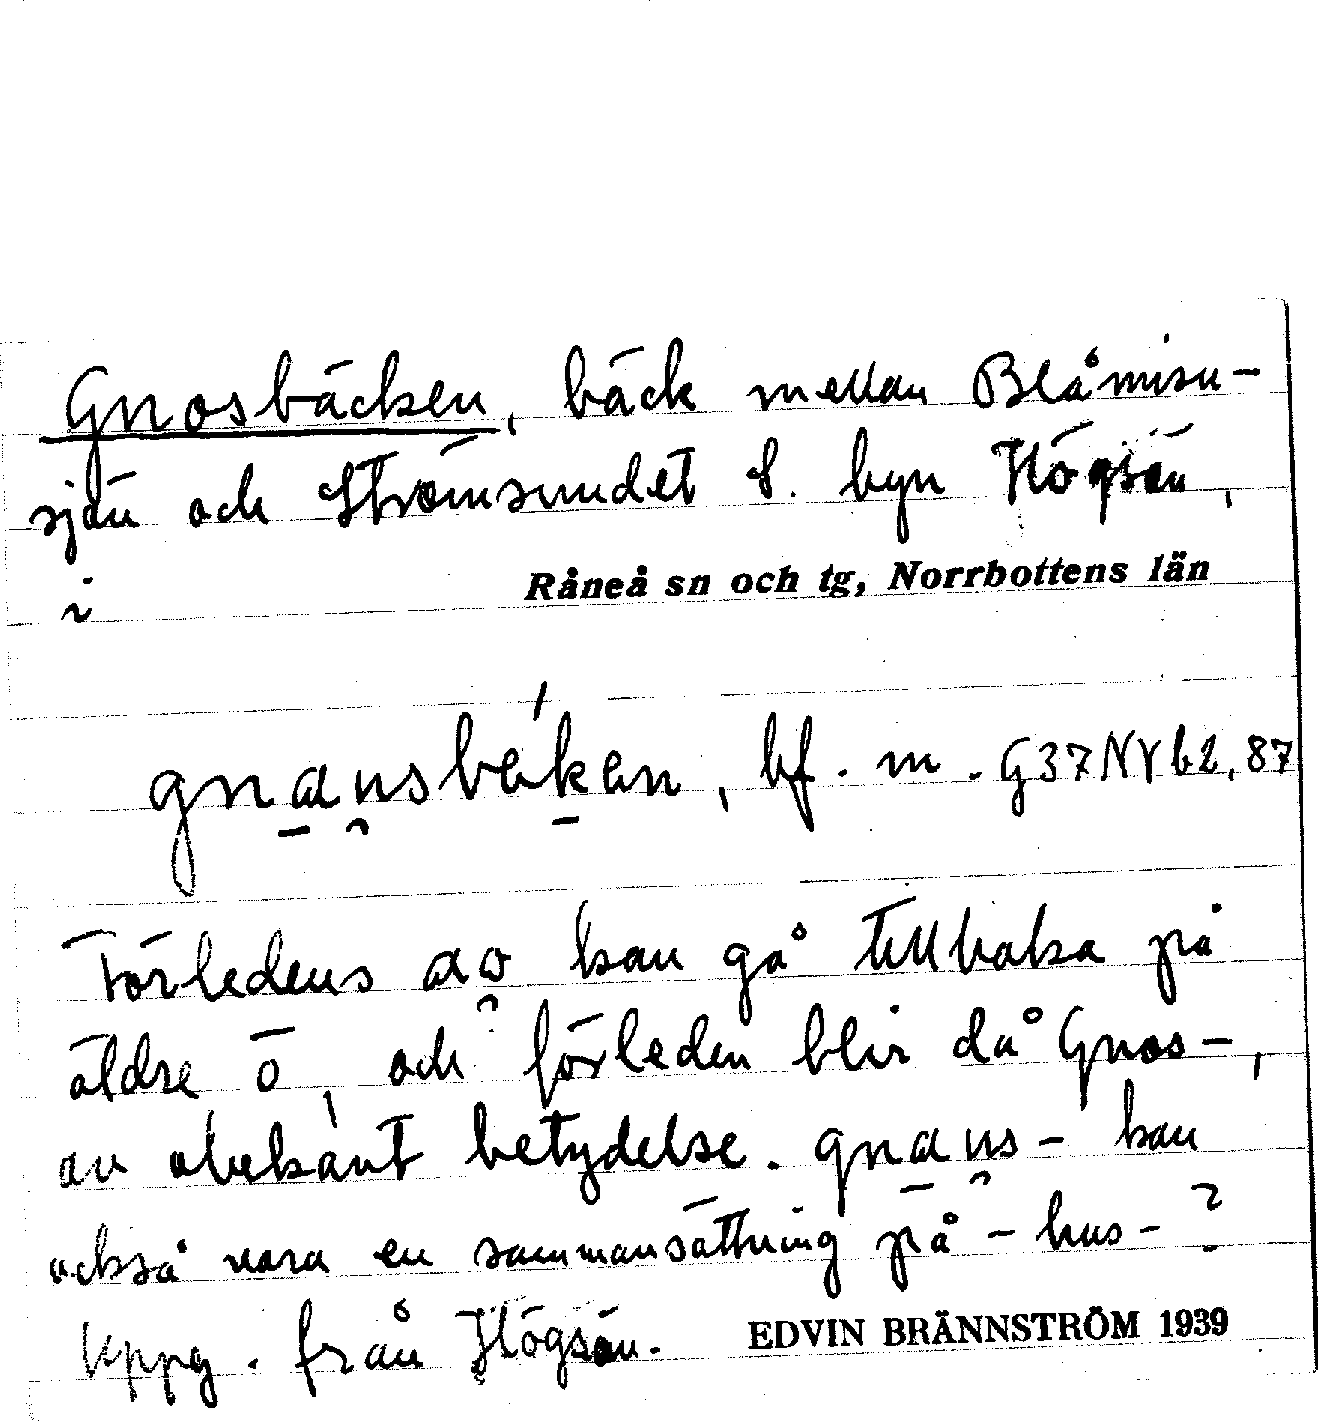 Gnosbäcken, bäck mellan Blåmisu-
sjön och Strömsundet S. byn Högsön,
i Råneå sn och tg, Norrbottens län
bf. m. G37NYb2,87
Förledens kan gå tillbaka på
äldre ō, och förleden blir då Gnos-,
av obekant betydelse. gnaus- kan
också vara en sammansättning på -hus-?
Uppg. från Högsön. EDVIN BRÄNNSTRÖM 1939